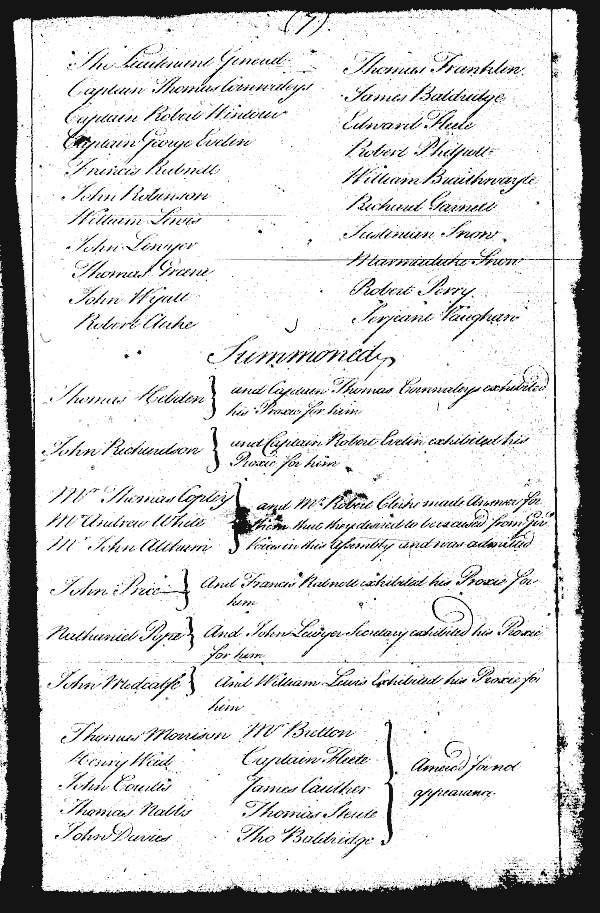 (7)
The Lieutenant General
Captain Thomas Cornwaleys
Captain Robert Wintour
Captain George Evelen
Francis Rabnett
John Robinson
William Lewis
John Langer
Thomas Grane
John Wyatt
Robert Clerke
Thomas Franklin
James Baldridge
Edward Fleete
Robert Philpott
William Braithwayte
Richard Garnett
Justenian Snow
Marmaduke Snow
Robert Perry
Serjeant Vaughan
Summoned,
Thomas Hebden } and Captain Thomas Cornwaleys exhibited
his Proxie for him
John Richardson } and Captain Robert Evelin exhibited his
Proxie for him
Mr Thomas Copley
Mr Andrew White
Mr John Altham
} and Mr Robert Clerke made answer for
them that they desired to be excused from
Voices in this Assembly and was admitted
John Price } And Francis Rabnett exhibited his Proxie for
him
Nathaniel Pope } And John Langer Secretary exhibited his Proxie
for him
John Medcalfe } And William Lewis Exhibited his Proxie for
him
Thomas Morrison
Henry
John Courtis
Thomas Nabbs
John Davies
Mr Britton
Captain Fleete
James Cauther
Thomas Steele
Tho Baldridge
} Amerced for not
appearance